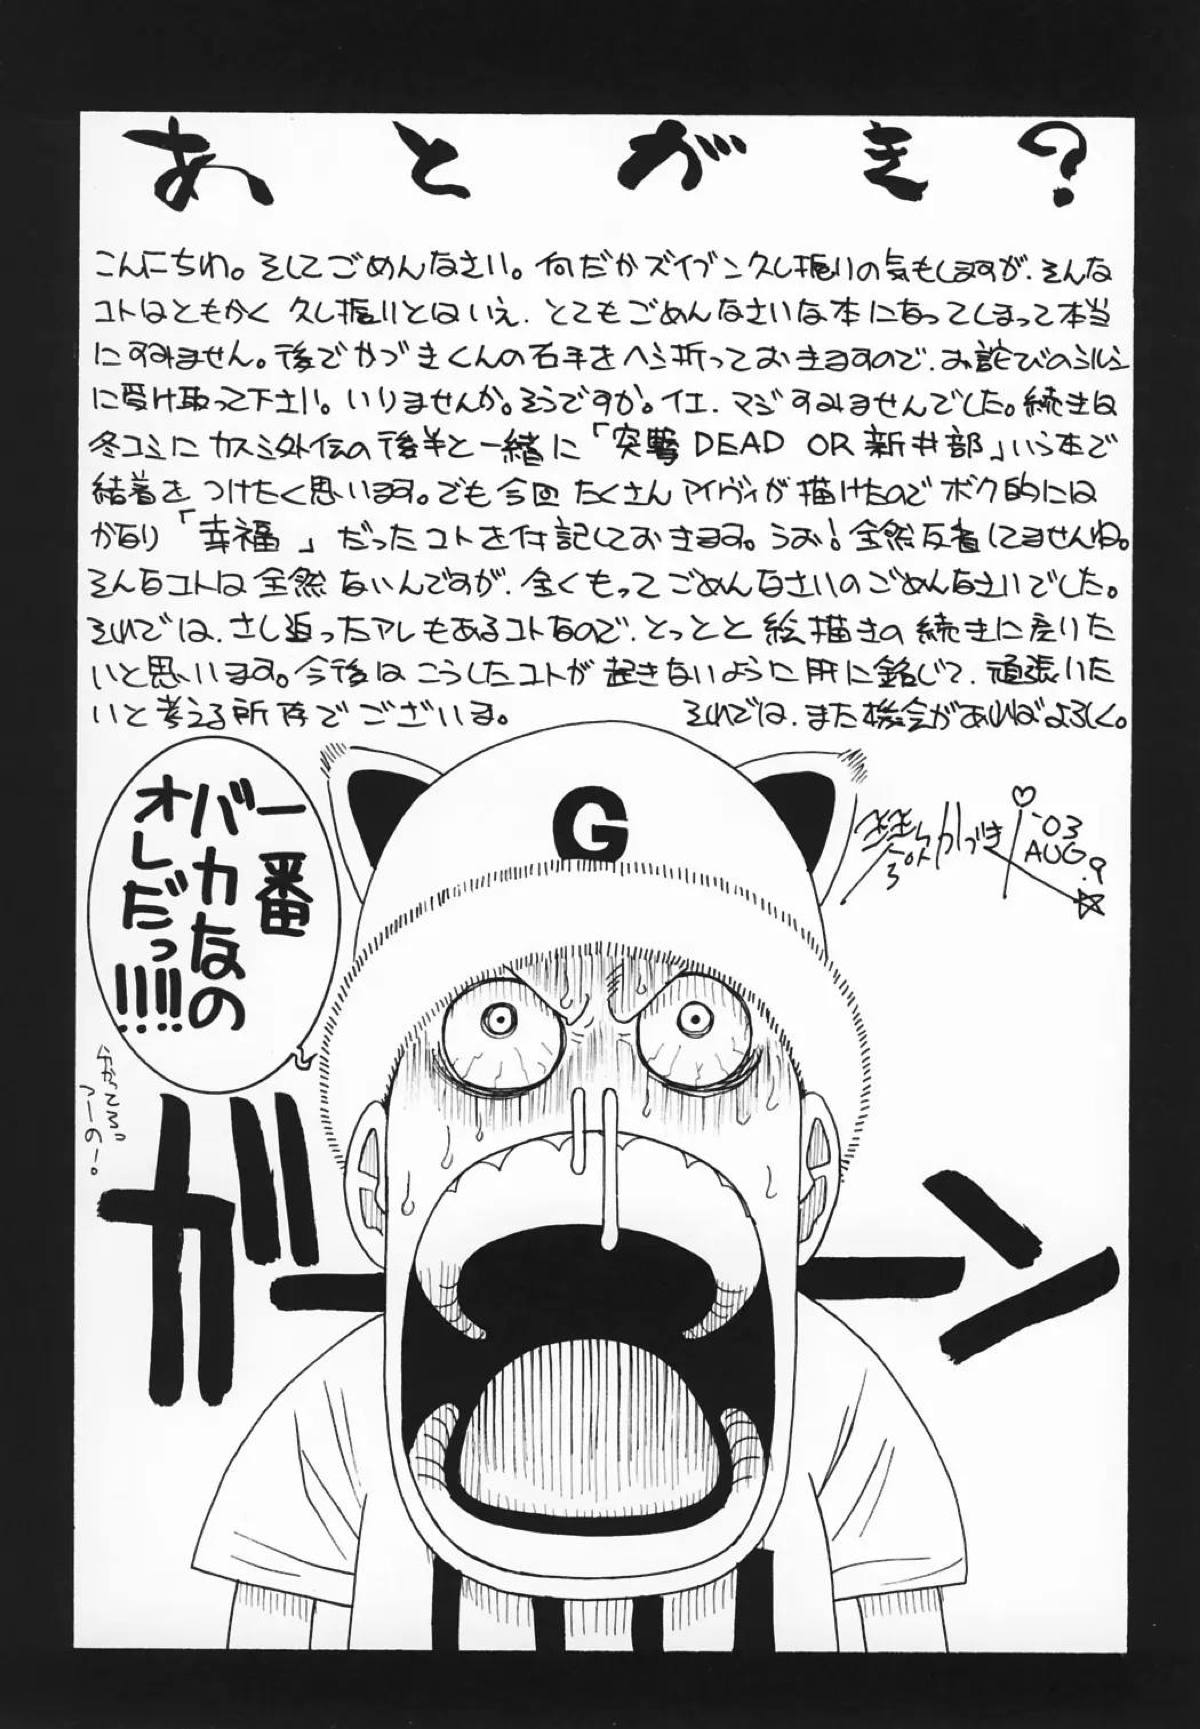 あとがき?
こんにちわ。そしてごめんなさい。何だかズイブン久し振りの気もしますが、そんな
コトはともかく 久し振りとはいえ、とてもごめんなさいな本になってしまって本当
にすみません。後でかづきくんの右手をヘシ折っておきますので、お詫びのシルシ
に受け取って下さい。いりませんか。そうですか。イエ、マジすみませんでした。続きは
冬コミにカスミ外伝の後半と一緒に「突撃DEAD OR 新井部」いう本で
結着をつけたく思います。でも今回たくさんアイヴィが描けたのでボク的には
かなり「幸福」だったコトを付記しておきます。うお!全然反省してませんね。
そんなコトは全然ないんですが、全くもってごめんなさいのごめんなさいでした。
それでは、さし迫ったアレもあるコトなので、とっとと絵描きの続きに戻りた
いと思います。今後はこうしたコトが起きないように肝に銘じて、頑張りいた
いと考える所存でございま。
それでは、また機会があればよろしく。
かづき
'03
AUG.9
一番
バカなの
オレだっ!!!!
わかってるっ
つーのー。
G
ガーン